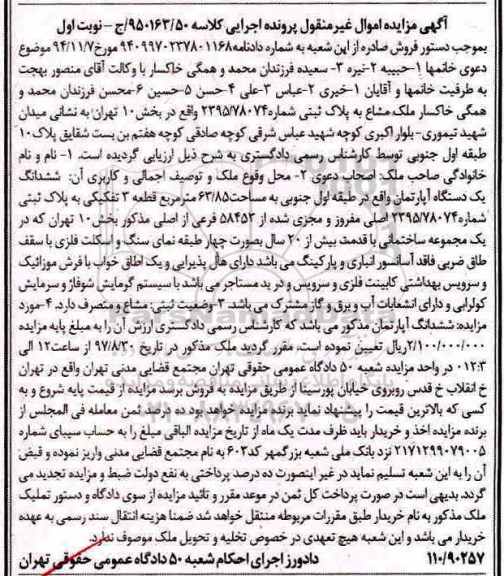 آگهی مزایده اموال غیرمنقول پرونده اجرایی کلاسه ۹۵۰۱۶۳/۵۰/ج - نوبت اول
بموجب دستور فروش صادره از این شعبه به شماره دادنامه ۹۴۰۹۹۷۰۲۳۷۸۰۱۱۶۸ مورخ ۹۴/۱۱/۷ موضوع
دعوی خانمها ۱-حبیبه ۲-نیره ۳- سعیده فرزندان محمد و همگی خاکسار با وکالت آقای منصور بهجت
به طرفیت خانمها و آقایان ۱-خیری ۲-عباس ۳-علی ۴-حسن ۵-حسین ۶-محسن فرزندان محمد و
همگی خاکسار ملک مشاع به پلاک ثبتی شماره ۲۳۹۵/۷۸۰۷۴ واقع در بخش ۱۰ تهران به نشانی میدان
شهید تیموری-بلوار اکبری کوچه شهید عباس شرقی کوچه صادقی کوچه هفتم بن بست شقایق پلاک ۱۰
طبقه اول جنوبی توسط کارشناس رسمی دادگستری به شرح ذیل ارزیابی گردیده است. ۱- نام و نام
خانوادگی صاحب ملک: اصحاب دعوی ۲- محل وقوع ملک و توصیف اجمالی و کاربری آن: ششدانگ
یک دستگاه آپارتمان واقع در طبقه اول جنوبی به مساحت ۶۳/۸۵ مترمربع قطعه ۳ تفکیکی به پلاک ثبتی
شماره ۲۳۹۵/۷۸۰۷۴ اصلی مفروز و مجزی شده از ۵۸۴۵۳ فرعی از اصلی مذکور بخش ۱۰ تهران که در
یک مجموعه ساختمانی با قدمت بیش از ۲۰ سال بصورت چهار طبقه نمای سنگ و اسکلت فلزی با سقف
طاق ضربی فاقد آسانسور انباری و پارکینگ می باشد دارای هال پذیرایی و یک اطاق خواب با فرش موزائیک
و سرویس بهداشتی کابینت فلزی و سرویس و در ید مستاجر می باشد با سیستم گرمایش شوفاژ و سرمایش
کولرابی و دارای انشعابات آب و برق و گاز مشترک می باشد. ۳-وضعیت ثبتی: مشاع و متصرف دارد. ۴-مورد
مزایده: ششدانگ آپارتمان مذکور می باشد که کارشناس رسمی دادگستری ارزش آن را به مبلغ پایه مزایده
۲/۱۰۰/۰۰۰/۰۰۰ریال تعیین نموده است. مقرر گردید ملک مذکور در تاریخ ۹۷/۸/۳۰ از ساعت ۱۲ الی
۱۲:۳۰ در واحد مزایده شعبه ۵۰ دادگاه عمومی حقوقی تهران مجتمع قضایی مدنی تهران واقع در تهران
خ انقلاب خ قدس روبروی خیابان پورسینا از طریق مزایده به فروش برسد مزایده از قیمت پایه شروع و به
کسی که بالاترین قیمت را پیشنهاد نماید برنده مزایده خواهد بود ده درصد ثمن معامله فی المجلس از
برنده مزایده اخذ و خریدار باید ظرف مدت یک ماه از تاریخ مزایده الباقی مبلغ را به حساب سیبای شماره
۲۱۷۱۲۹۹۰۷۹۰۰۵ نزد بانک ملی شعبه بزرگمهر کد ۶۰۳ به نام مجتمع قضایی مدنی واریز نموده و قبض
آن را به این شعبه تسلیم نماید در غیر اینصورت ده درصد پرداختی به نفع دولت ضبط و مزایده تجدید می
گردد. بدیهی است در صورت پرداخت کل ثمن در موعد مقرر و تائید مزایده از سوی دادگاه و دستور تملیک
ملک مذکور به نام خریدار طبق مقررات مربوطه منتقل خواهد شد ضمنا هزینه انتقال سند رسمی به عهده
خریدار می باشد و این شعبه هیچ تعهدی در خصوص تخلیه و تحویل ملک موصوف ندارد.
۱۱۰/۹۰۲۵۷ دادورز اجرای احکام شعبه ۵۰ دادگاه عمومی حقوقی تهران